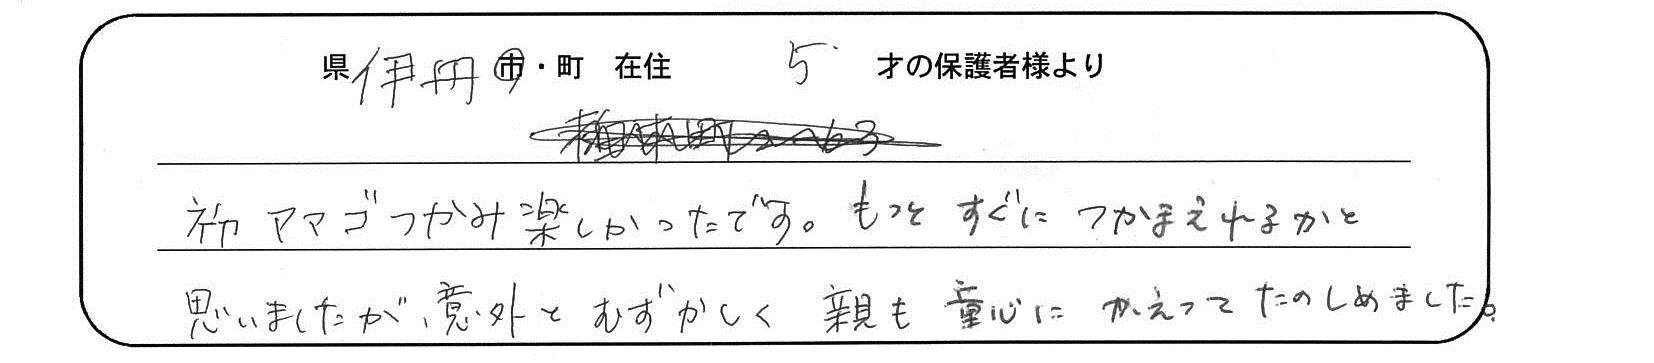 県 伊丹 市・町 在住 5 才の保護者様より
初 アマゴつかみ楽しかったです。もっと すぐに つかまえれるかと
思いましたが、意外と むずかしく 親も 童心に かえって たのしめました。